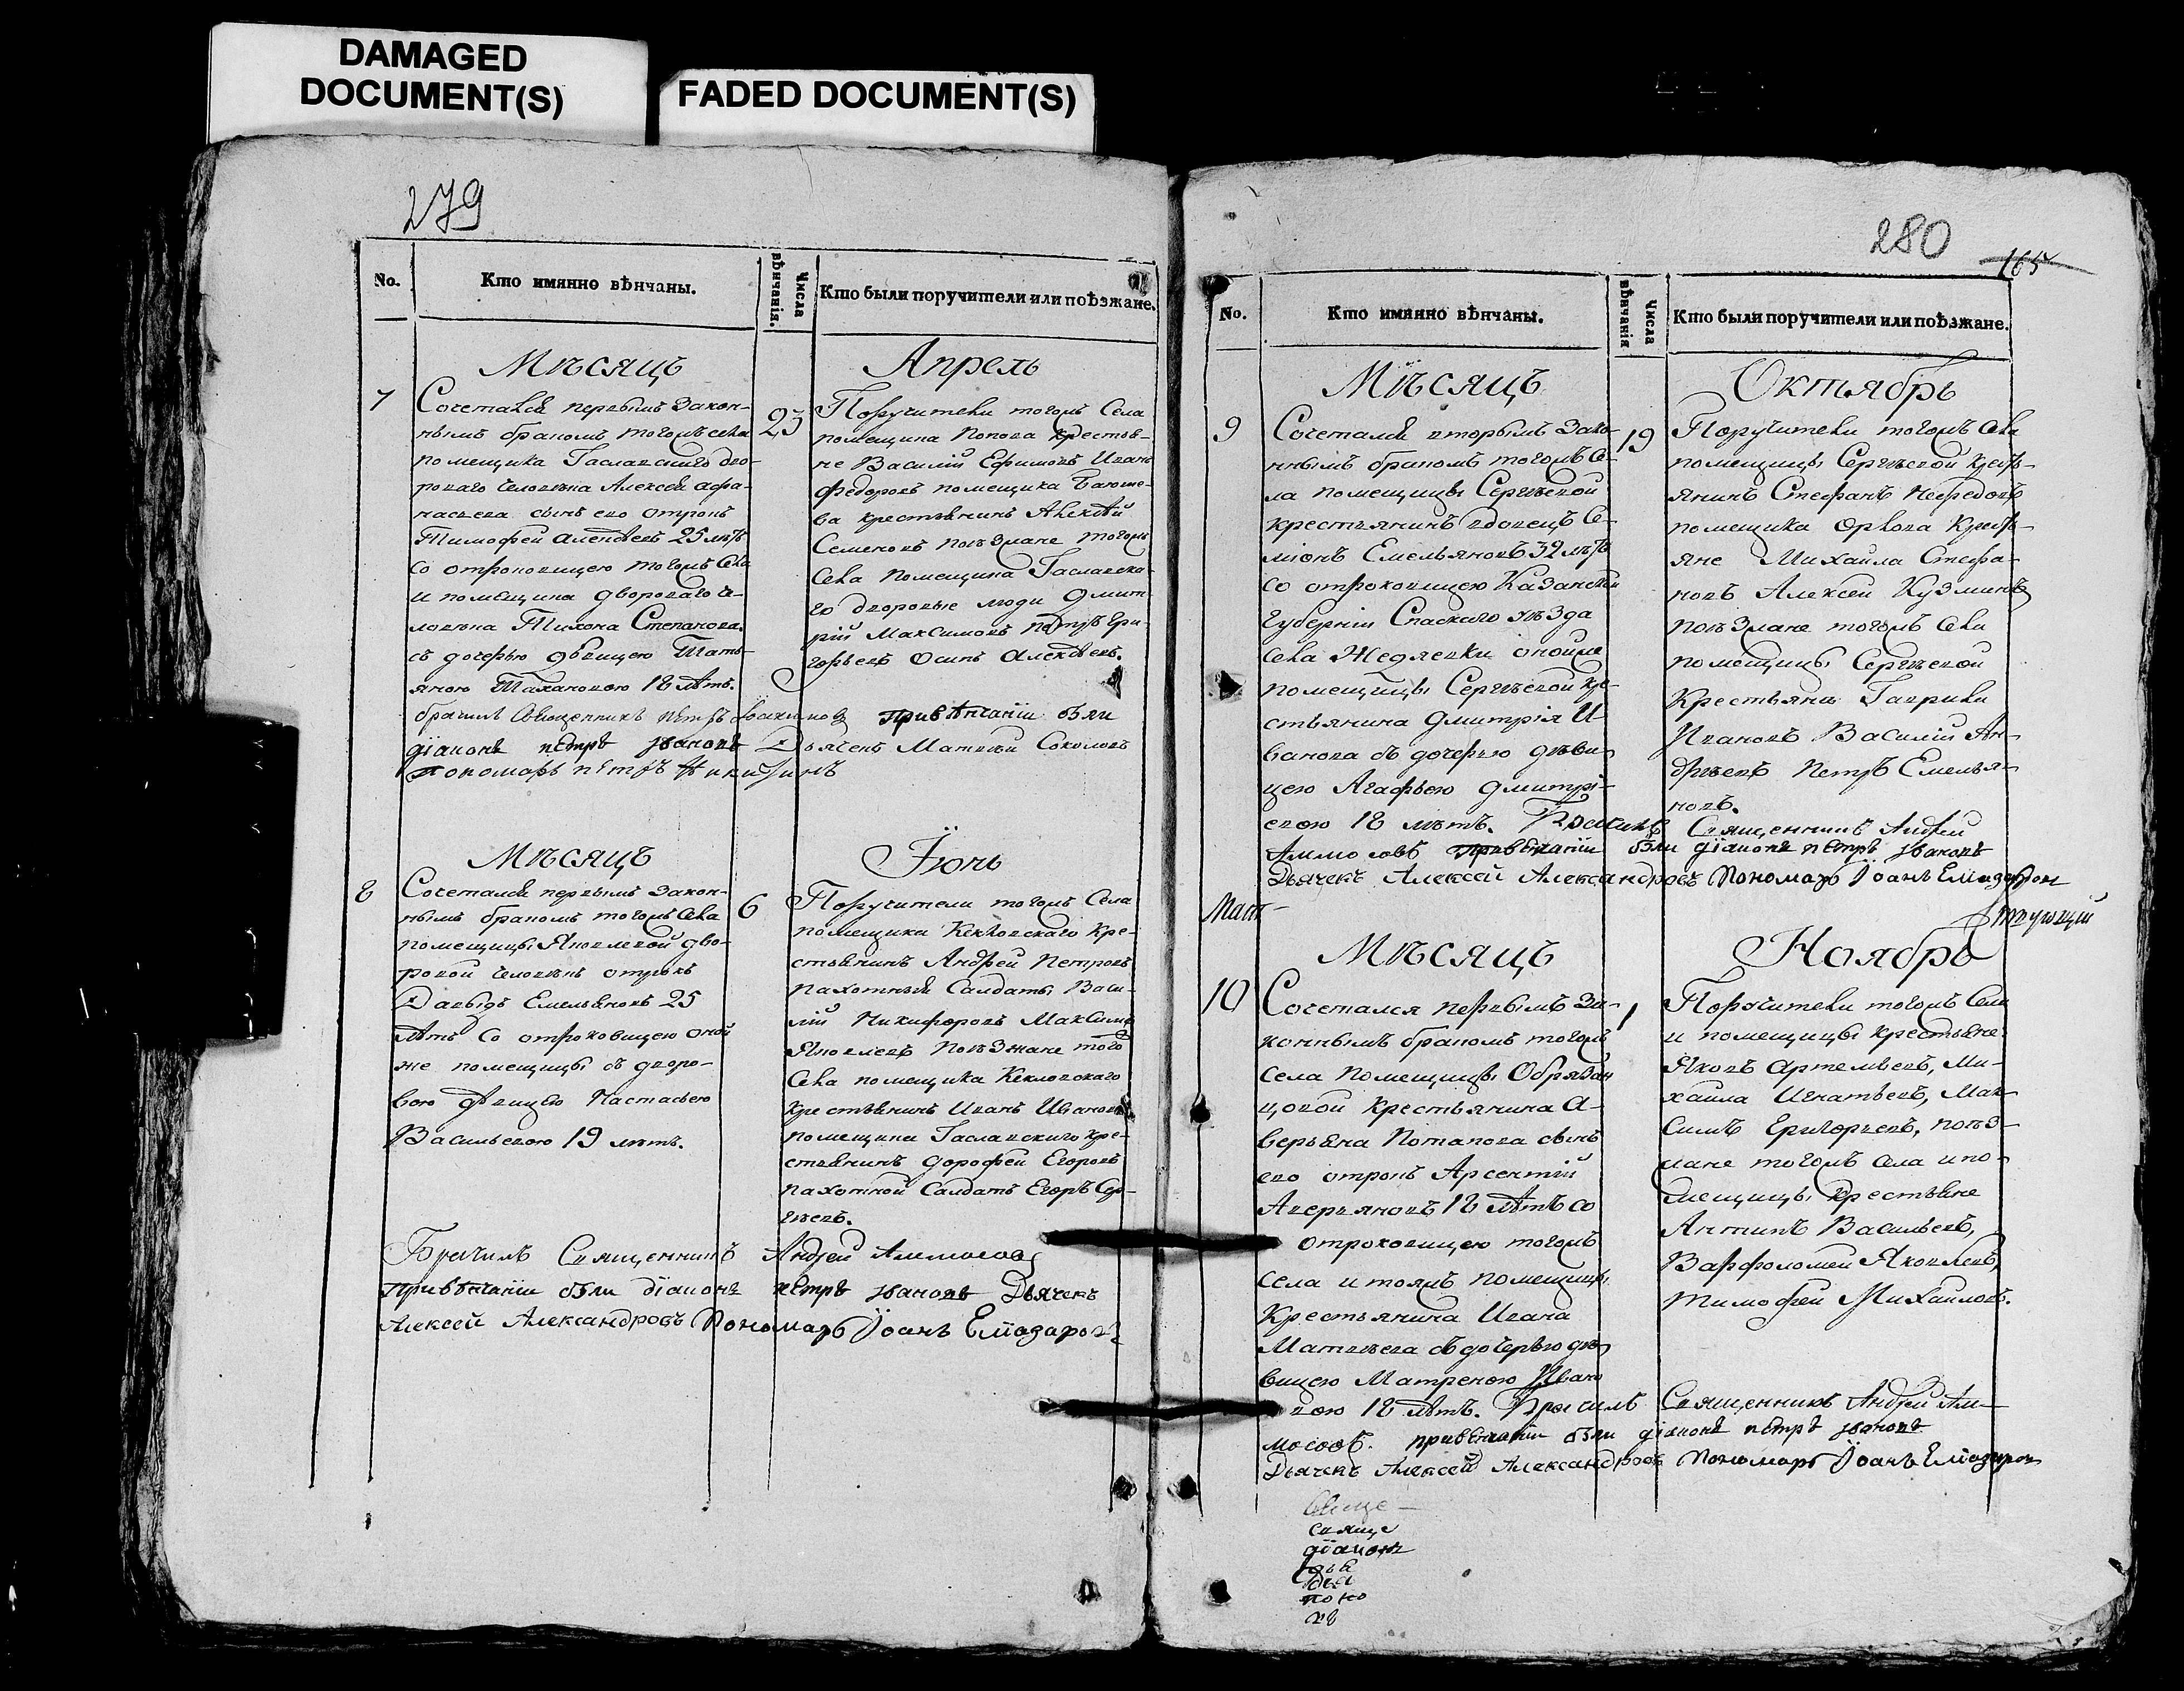 DAMAGED
DOCUMENT(S)
FADED DOCUMENT(S)
279
No.
Кто имянно вѣнчаны.
Числа вѣнчанія.
Кто были поручители или поѣзжане.
Мѣсяцъ
Апрель
7
Сочетался первымъ Закон-
нымъ бракомъ тогожъ села
помещика Гаславскаго дво-
роваго человѣка Алексея афа-
насьева сынъ его отрокъ
Тимофей алексѣевъ 25 лѣтъ
со отроковицею тогожъ села
и помещика двороваго че-
ловѣка Тихона Степанова
съ дочерью дѣвицею Тать-
яною Тихоновою 18 лѣтъ.
23
Поручители тогожъ Села
помещика Попова крестья-
не Василій Ефимовъ Иванъ
Федоровъ помещика
крестьянинъ Алексѣй
Семеновъ поѣзжане тогожъ
Села помещика Гаславска-
го дворовые люди Дмит-
рій Максимовъ петръ Гри-
горьевъ Осипъ алексѣевъ.
брачилъ Священникъ петръ Иоакимовъ привѣнчаніи были
діаконъ петръ ивановъ Дьячекъ Матвѣй Соколовъ
пономарь петръ Никитинъ
Мѣсяцъ
Іюнь
8
Сочетался первымъ закон-
нымъ бракомъ тогожъ села
помещицы Яковлевой дво-
ровой человѣкъ отрокъ
Давыдъ Емельяновъ 25
лѣтъ со отроковицею оной
же помещицы съ дворо-
вою дѣвицею Настасьею
Васильевою 19 лѣтъ.
6
Поручители тогожъ Села
помещика Кекловскаго кре-
стьянинъ Андрей Петровъ
пахотныя Салдаты Васи-
лій Никифоровъ Максимъ
Яковлевъ поѣзжане того
Села помещика Кекловскаго
крестьянинъ Иванъ Ивановъ
помещика Гаславскаго кре-
стьянинъ дорофей Егоровъ
пахотной Салдатъ Егоръ Сер-
гѣевъ.
Брачилъ Священникъ Андрей Аммосовъ
привѣнчаніи были діаконъ петръ ивановъ Дьячекъ
Алексей Александровъ Пономарь Іоанъ Елиазаровъ
280
165
No.
Кто имянно вѣнчаны.
Числа вѣнчанія
Кто были поручители или поѣзжане.
Мѣсяцъ
Октябрь
9
Сочетался вторымъ Зако-
ннымъ бракомъ тогожъ се-
ла помещицы Сергѣевой
крестьянинъ вдовецъ Се-
міонъ Емельяновъ 32 лѣтъ
со отроковицею Казанской
губерніи Спаскаго уѣзда
села Жедяевки оной же
помещицы Сергѣевой кре-
стьянина Дмитрія И-
ванова съ дочерью дѣви-
цею Агафьею Дмитрі-
евою 18 лѣтъ.
19
Поручители тогожъ села
помещицы Сергѣевой крестъ-
янинъ Стефанъ Нефедовъ
помещика Орлова крестъ-
яне Михайла Стефа-
новъ Алексей Кузминъ
поѣзжане тогожъ села
помещицы Сергѣевой
Крестьяна Гаврила
Ивановъ Василій Ан-
дрѣевъ Петръ Емелья-
новъ.
Брачилъ Священникъ Андрей
Аммосовъ привенчаніи были діаконъ петръ ивановъ
Дьячекъ Алексей Александровъ Пономарь Іоанъ Елиазаровъ
Мѣсяцъ
Ноябрь
10
Сочетался первымъ За-
коннымъ бракомъ тогожъ
села помещицы Обрязан
цовой крестьянина А-
верьяна Потапова сынъ
его отрокъ Арсентій
Аверьяновъ 18 лѣтъ со
отроковицею тогожъ
села и тояжъ помещицы
Крестьянина Ивана
Матвѣева съ дочерью дѣ-
вицею Матреною Ивано
вою 18 лѣтъ.
1
Поручители тогожъ Села
и помещицы крестьяне
Яковъ Артемьевъ, Ми-
хайла Игнатьевъ, Мак-
симъ Григорьевъ, поѣз-
жане тогожъ села и по-
мещицы крестьяне
Антипъ Васильевъ,
Варфоломей Яковлевъ,
Тимофей Михайловъ.
Брачилъ Священникъ Андрей Ам-
мосовъ. привенчаніи были діаконъ петръ ивановъ
Дьячекъ Алексей Александровъ Пономарь Іоанъ Елиазаровъ
свяще
діаконъ
поно